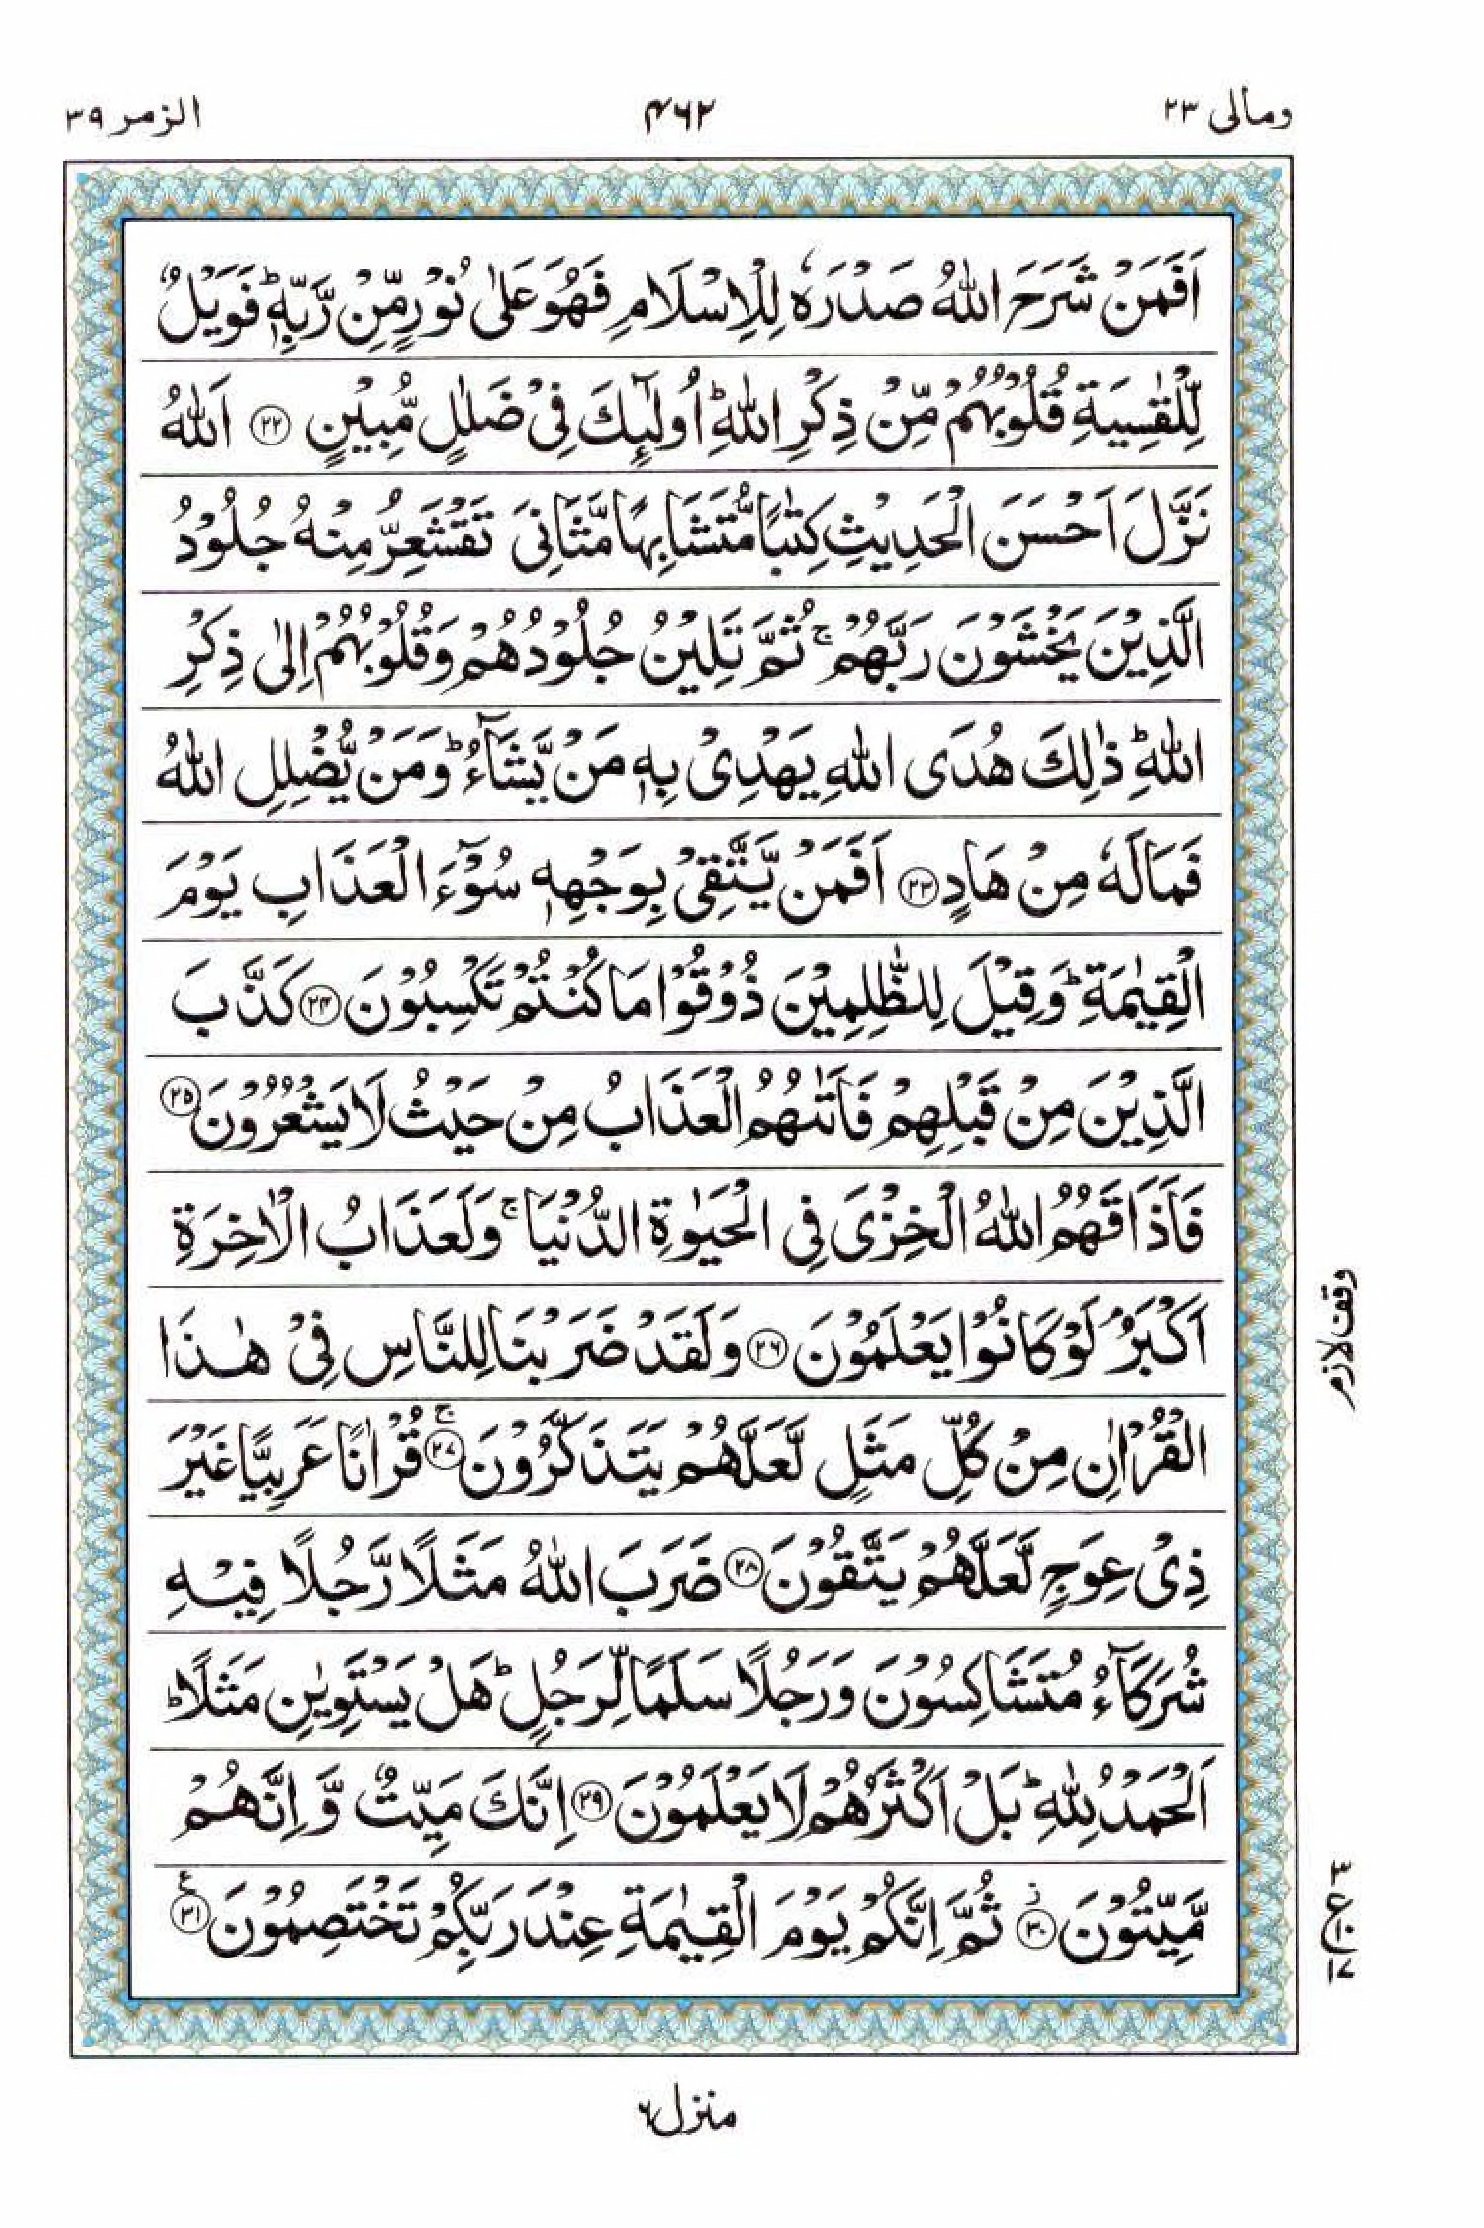 ومالی ٢٣ ۴۶۲ الزمر ٣٩
اَفَمَنْ شَرَحَ اللّٰهُ صَدْرَهٗ لِلْاِسْلَامِ فَهُوَ عَلٰی نُوْرٍ مِّنْ رَّبِّهٖؕ فَوَيْلٌ
لِّلْقٰسِيَةِ قُلُوْبُهُمْ مِّنْ ذِكْرِ اللّٰهِؕ اُولٰٓئِكَ فِیْ ضَلٰلٍ مُّبِيْنٍ ﴿۲۲﴾ اَللّٰهُ
نَزَّلَ اَحْسَنَ الْحَدِيْثِ كِتٰبًا مُّتَشَابِهًا مَّثَانِیَ تَقْشَعِرُّ مِنْهُ جُلُوْدُ
الَّذِيْنَ يَخْشَوْنَ رَبَّهُمْۚ ثُمَّ تَلِيْنُ جُلُوْدُهُمْ وَقُلُوْبُهُمْ اِلٰی ذِكْرِ
اللّٰهِؕ ذٰلِكَ هُدَی اللّٰهِ يَهْدِیْ بِهٖ مَنْ يَّشَآءُؕ وَمَنْ يُّضْلِلِ اللّٰهُ
فَمَا لَهٗ مِنْ هَادٍ ﴿۲۳﴾ اَفَمَنْ يَّتَّقِیْ بِوَجْهِهٖ سُوْٓءَ الْعَذَابِ يَوْمَ
الْقِيٰمَةِؕ وَقِيْلَ لِلظّٰلِمِيْنَ ذُوْقُوْا مَا كُنْتُمْ تَكْسِبُوْنَ ﴿۲۴﴾ كَذَّبَ
الَّذِيْنَ مِنْ قَبْلِهِمْ فَاَتٰىهُمُ الْعَذَابُ مِنْ حَيْثُ لَا يَشْعُرُوْنَ ﴿۲۵﴾
فَاَذَاقَهُمُ اللّٰهُ الْخِزْیَ فِی الْحَيٰوةِ الدُّنْيَاۚ وَلَعَذَابُ الْاٰخِرَةِ
اَكْبَرُۘ لَوْ كَانُوْا يَعْلَمُوْنَ ﴿۲۶﴾ وَلَقَدْ ضَرَبْنَا لِلنَّاسِ فِیْ هٰذَا
وقف لازم
الْقُرْاٰنِ مِنْ كُلِّ مَثَلٍ لَّعَلَّهُمْ يَتَذَكَّرُوْنَ ﴿۲۷﴾ۚ قُرْاٰنًا عَرَبِيًّا غَيْرَ
ذِیْ عِوَجٍ لَّعَلَّهُمْ يَتَّقُوْنَ ﴿۲۸﴾ ضَرَبَ اللّٰهُ مَثَلًا رَّجُلًا فِيْهِ
شُرَكَآءُ مُتَشَاكِسُوْنَ وَرَجُلًا سَلَمًا لِّرَجُلٍؕ هَلْ يَسْتَوِيٰنِ مَثَلًاؕ
اَلْحَمْدُ لِلّٰهِؕ بَلْ اَكْثَرُهُمْ لَا يَعْلَمُوْنَ ﴿۲۹﴾ اِنَّكَ مَيِّتٌ وَّاِنَّهُمْ
مَّيِّتُوْنَ ﴿۳۰﴾ؗ ثُمَّ اِنَّكُمْ يَوْمَ الْقِيٰمَةِ عِنْدَ رَبِّكُمْ تَخْتَصِمُوْنَ ﴿۳۱﴾ع
٣
ع
١٧
منزل ۶